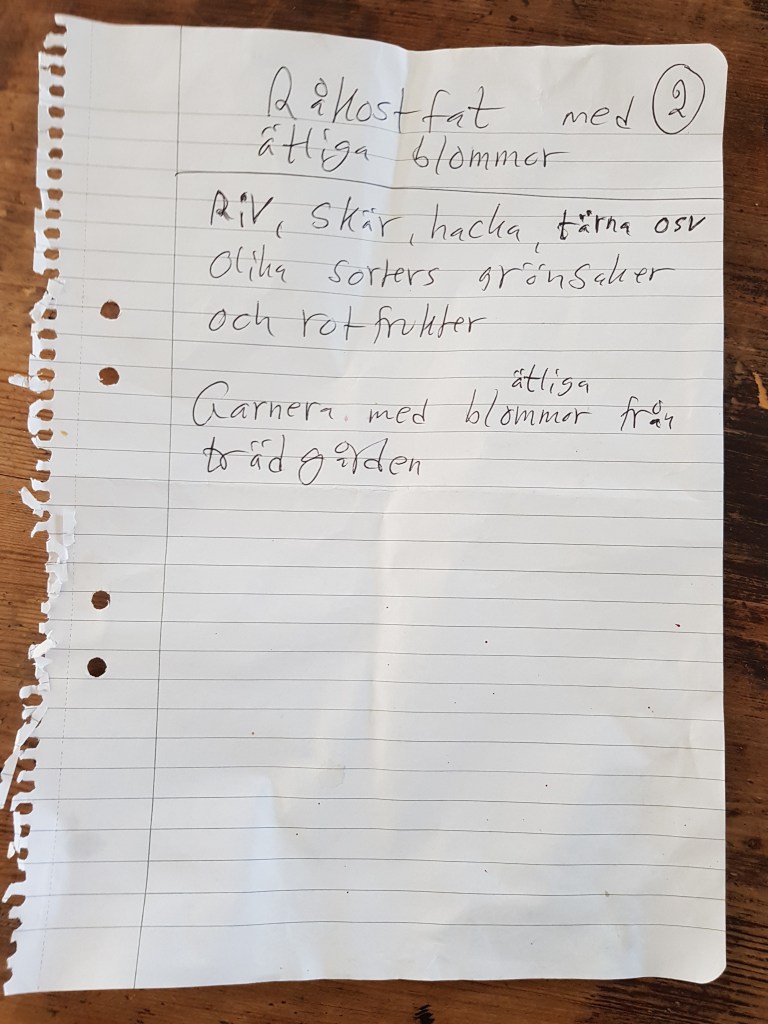 Råkostfat med 2
ätliga blommor
Riv, skär, hacka, tärna osv
olika sorters grönsaker
och rotfrukter
ätliga
Garnera med blommor från
trädgården